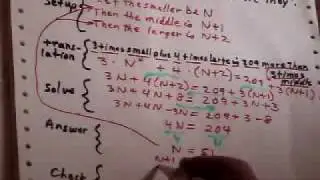 Setup Let the smaller be N
Then the middle is N+1
Then the larger is N+2
+trans-
lation
3 times small plus 4 times large is 209 more than 3 times middle
3·N + 4·(N+2) = 209
Solve
3N+4(N+2) = 209+3(N+1)
3N+4N+8 = 209+3N+3
3N+4N-3N = 209+3-8
4N = 204
Answer
N = 51
N+1
Check